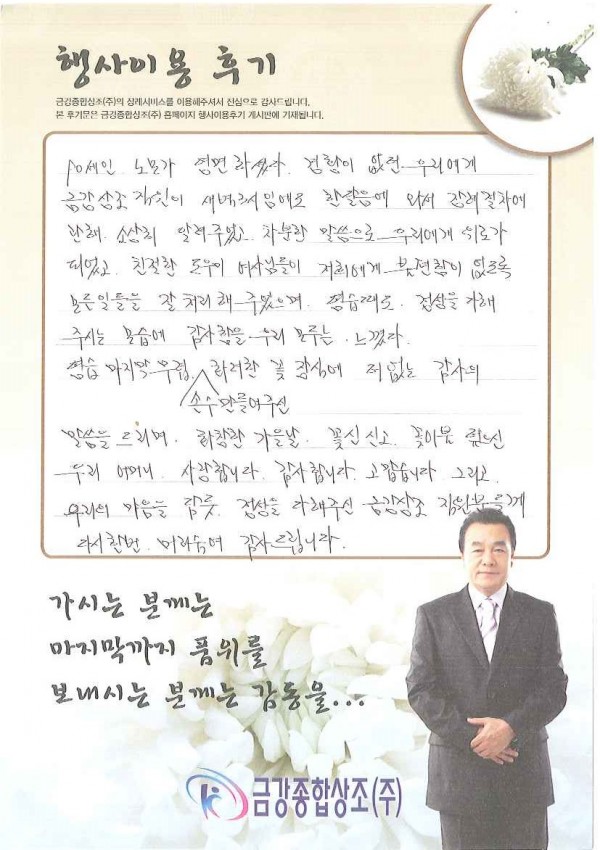 행사이용 후기
금강종합상조(주)의 장례서비스를 이용해주셔서 진심으로 감사드립니다.
본 후기문은 금강종합상조(주) 홈페이지 행사이용후기 게시판에 기재됩니다.
노모가 영면 하셨다. 경험이 없던 우리에게
금강상조 직원이 새벽 임에도 한걸음에 와서 장례절차에
대해 소상히 알려주었고 차분한 말씀으로 우리에게 위로가
되었고, 친절한 도우미 여사님들이 저희에게 불편함이 없도록
모든일들을 잘 처리해 주었으며, 염습때도 정성을 다해
주시는 모습에 감사함을 우리 모두는 느꼈다.
염습 마지막 무렵, 화려한 꽃 장식에 더없는 감사의
손수만들어주신
말씀을 드리며, 화창한 가을날, 꽃신신고, 꽃이불
우리 어머니 사랑합니다. 감사합니다. 고맙습니다. 그리고,
우리의 마음을 정성을 다해주신 금강상조 직원분들께
다시한번 머리숙여 감사드립니다.
가시는 분께는
마지막까지 품위를
보내시는 분께는 감동을...
금강종합상조(주)